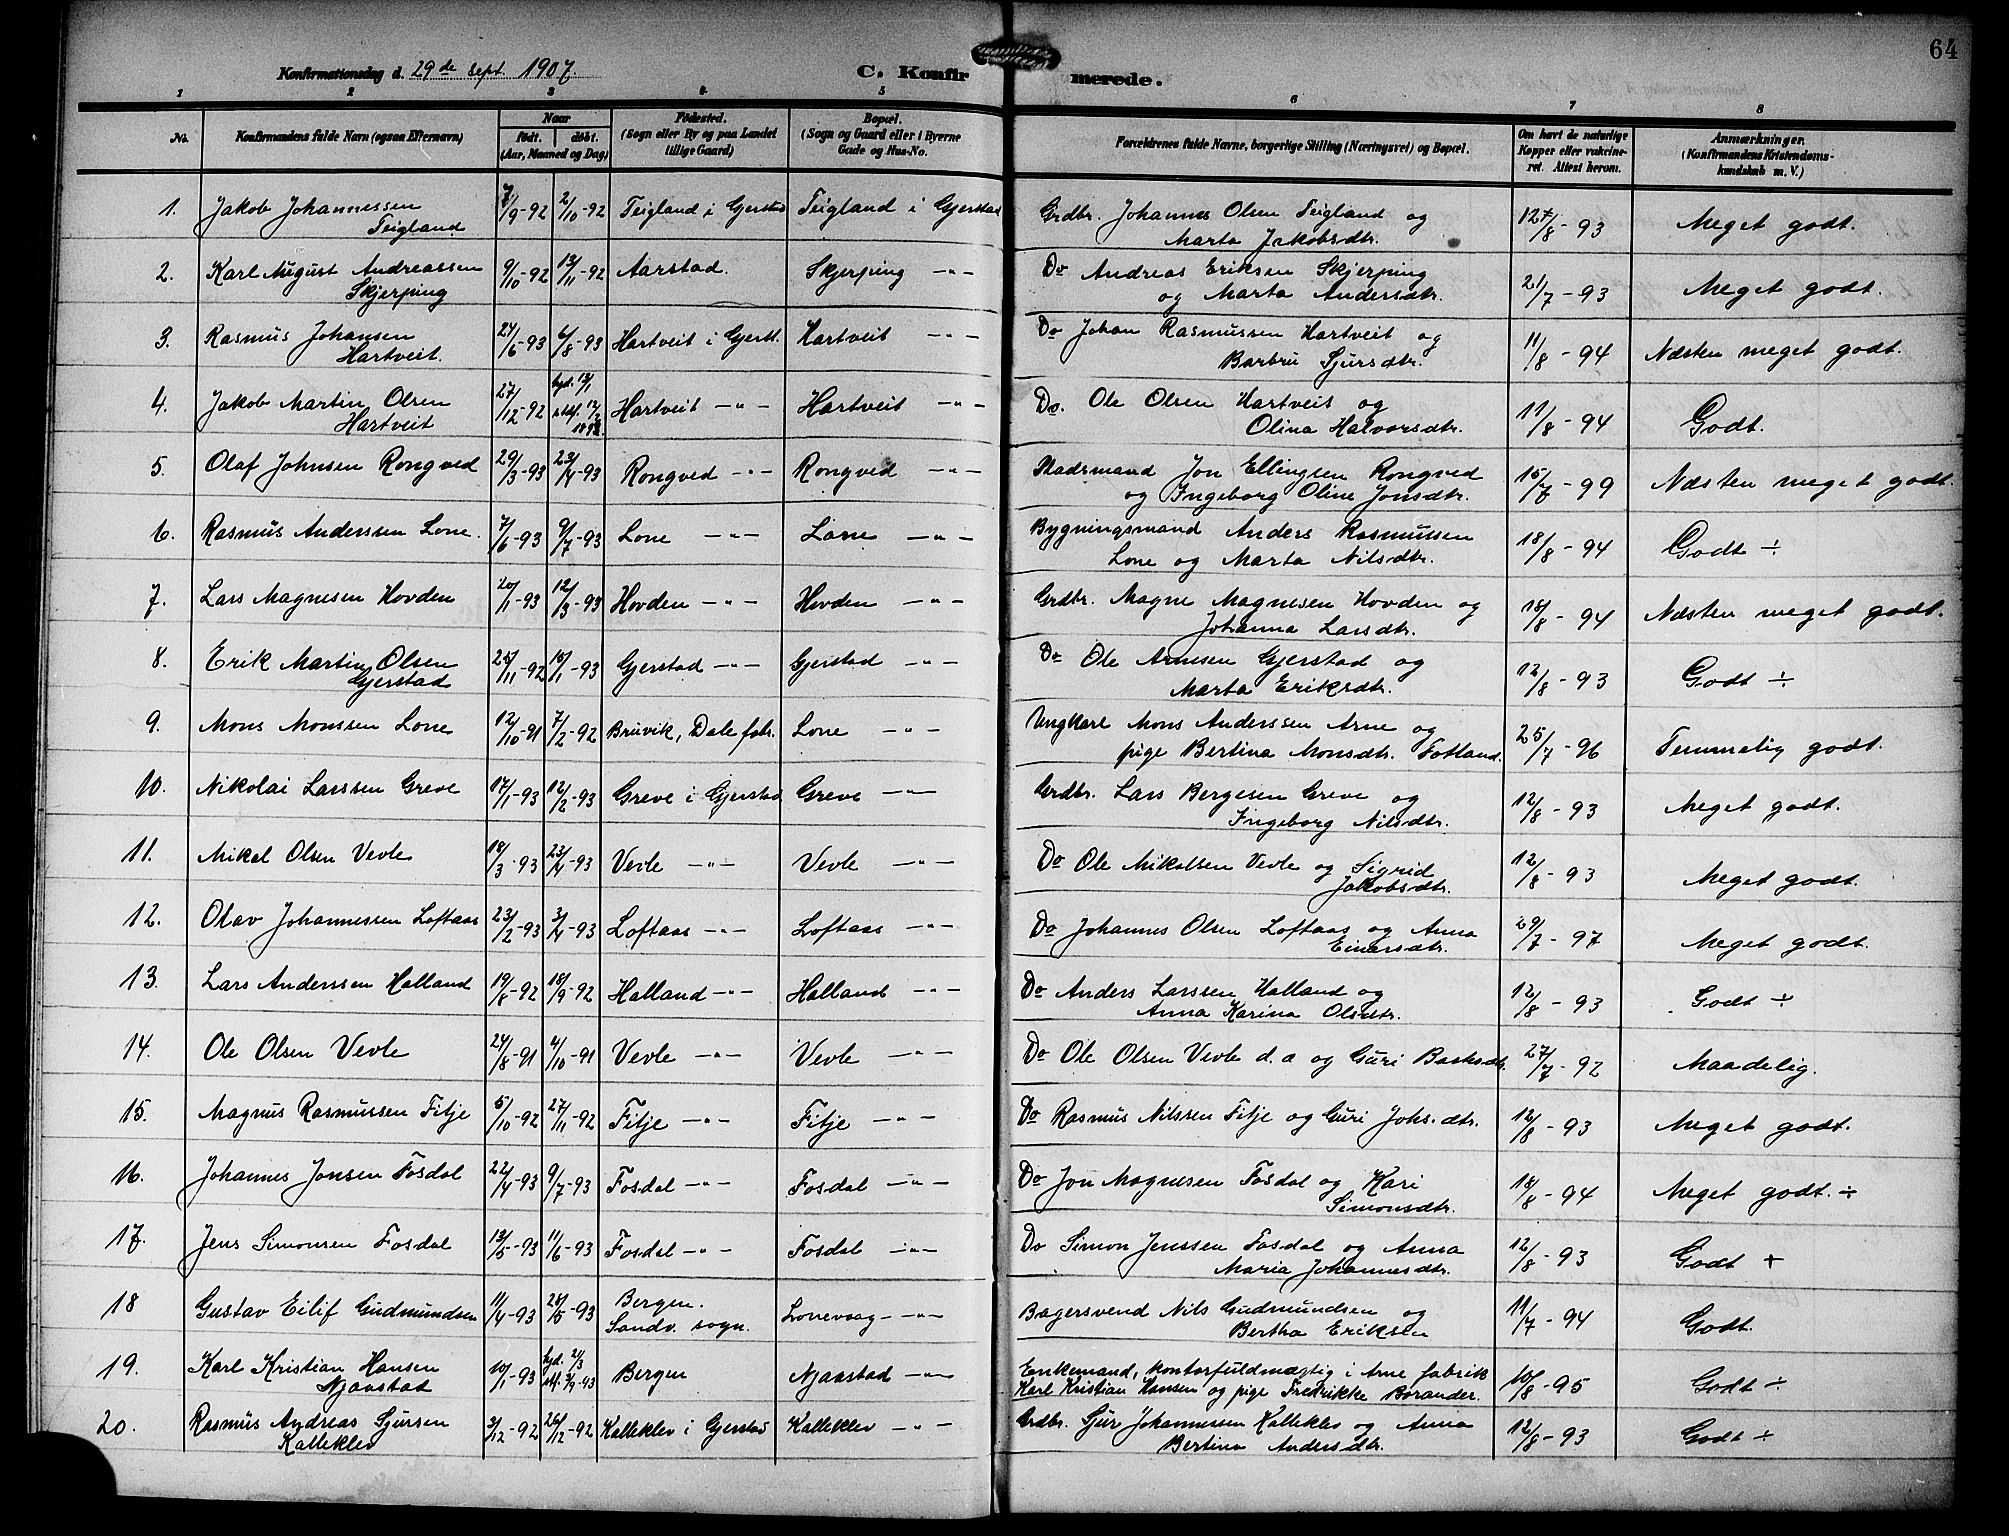 64
Konfirmationsdag d. 29de sept. 1907.
C. Konfirmerede.
1 2 3 4 5 6 7 8
No. Konfirmandens fulde Navn (ogsaa Efternavn) Naar født. døbt. (Aar, Maaned og Dag) Fødested. (Sogn eller By og paa Landet tillige Gaard) Bopæl. (Sogn og Gaard eller i Byerne Gade og Hus-No. Forældrenes fulde Navne, borgerlige Stilling (Næringsvei) og Bopæl. Om havt de naturlige Kopper eller vakcineret. Attest herom. Anmærkninger. (Konfirmandens Kristendomskundskab m. V.)
1. Jakob Johannessen Teigland 7/9-92 2/10-92 Teigland i Gjerstad Teigland i Gjerstad Grdbr. Johannes Olsen Teigland og Marta Jakobsdtr. 12/8-93 Meget godt.
2. Karl August Andreassen Skjerping 9/10-92 13/11-92 Aarstad. Skjerping -"- Do Andreas Eriksen Skjerping og Marta Andersdtr. 21/7-93 Meget godt.
3. Rasmus Johansen Hartveit. 24/6-93 6/8-93 Hartveit i Gjerst. Hartveit -"- Do Johan Rasmussen Hartveit og Barbru Sjursdtr. 11/8-94 Næsten meget godt.
4. Jakob Martin Olsen Hartveit 27/12-92 Hartveit -"- Hartveit -"- Do. Ole Olsen Hartveit og Olina Halvorsdtr. 11/8-94 Godt.
5. Olaf Johnsen Rongved 29/3-93 23/4-93 Rongved -"- Rongved -"- Pladsmand Jon Ellingsen Rongved og Ingeborg Oline Jonsdtr. 15/7-99 Næsten meget godt
6. Rasmus Anderssen Lone. 7/6-93 9/7-93 Lone -"- Lone -"- Bygningsmand Anders Rasmussen Lone og Marta Nilsdtr. 18/8-94 Godt ÷
7. Lars Magnesen Hovden 20/1-93 12/3-93 Hovden -"- Hovden -"- Grdbr. Magne Magnesen Hovden og Johanna Larsdtr. 18/8-94 Næsten meget godt.
8. Erik Martin Olsen Gjerstad 25/11-92 15/1-93 Gjerstad -"- Gjerstad -"- Do Ole Arnesen Gjerstad og Marta Eriksdtr. 12/8-93 Godt ÷
9. Mons Monssen Lone 12/10-91 7/2-92 Bruvik, Dale fabr. Lone -"- Ungkarl Mons Anderssen Arne og pige Bertina Monsdtr. Fotland. 25/7-96 Temmelig godt.
10. Nikolai Larssen Greve 17/1-93 12/2-93 Greve i Gjerstad Greve -"- Grdbr. Lars Bergesen Greve og Ingeborg Nilsdtr. 12/8-93 Meget godt.
11. Mikal Olsen Vevle 18/3-93 23/4-93 Vevle -"- Vevle -"- Do Ole Mikalsen Vevle og Sigrid Jakobsdtr. 12/8-93 Meget godt.
12. Olav Johannessen Loftaas 23/2-93 3/4-93 Loftaas -"- Loftaas -"- Do Johannes Olsen Loftaas og Anna Einarsdtr. 29/7-97 Meget godt.
13. Lars Anderssen Halland 19/8-92 18/9-92 Halland -"- Halland -"- Do Anders Larssen Halland og Anna Karina Olsdtr. 12/8-93 Godt ÷
14. Ole Olsen Vevle 24/8-91 4/10-91 Vevle -"- Vevle -"- Do Ole Olsen Vevle d. a og Guri Baarsdtr. 27/7-92 Maadelig.
15. Magnus Rasmussen Fitje 5/10-92 27/11-92 Fitje -"- Fitje -"- Do Rasmus Nilssen Fitje og Guri Johs.dtr. 12/8-93 Meget godt.
16. Johannes Jonsen Fosdal 22/4-93 9/7-93 Fosdal -"- Fosdal -"- Do Jon Magnesen Fosdal og Kari Simonsdtr. 18/8-94 Meget godt. ÷
17. Jens Simonsen Fosdal 13/5-93 11/6-93 Fosdal -"- Fosdal -"- Do Simon Jenssen Fosdal og Anna Maria Johannesdtr. 12/8-93 Godt +
18 Gustav Eilif Gudmundsen 11/4-93 28/5-93 Bergen. Sandv. sogn. Lonevaag -"- Bagersvend Nils Gudmundsen og Bertha Eriksen 11/7-94 Godt.
19. Karl Kristian Hansen Njaastad 10/1-93 Bergen Njaastad -"- Enkemand, kontorfuldmægtig i Arne fabrik Karl Kristian Hansen og pige Fredrikke Borander. 10/8-95 Godt ÷
20. Rasmus Andreas Sjursen Kalleklev 3/12-92 26/12-92 Kalleklev i Gjerstad Kalleklev -"- Grdbr. Sjur Johannessen Kalleklev og Anna Bertina Andersdtr. 12/8-93 Godt ÷